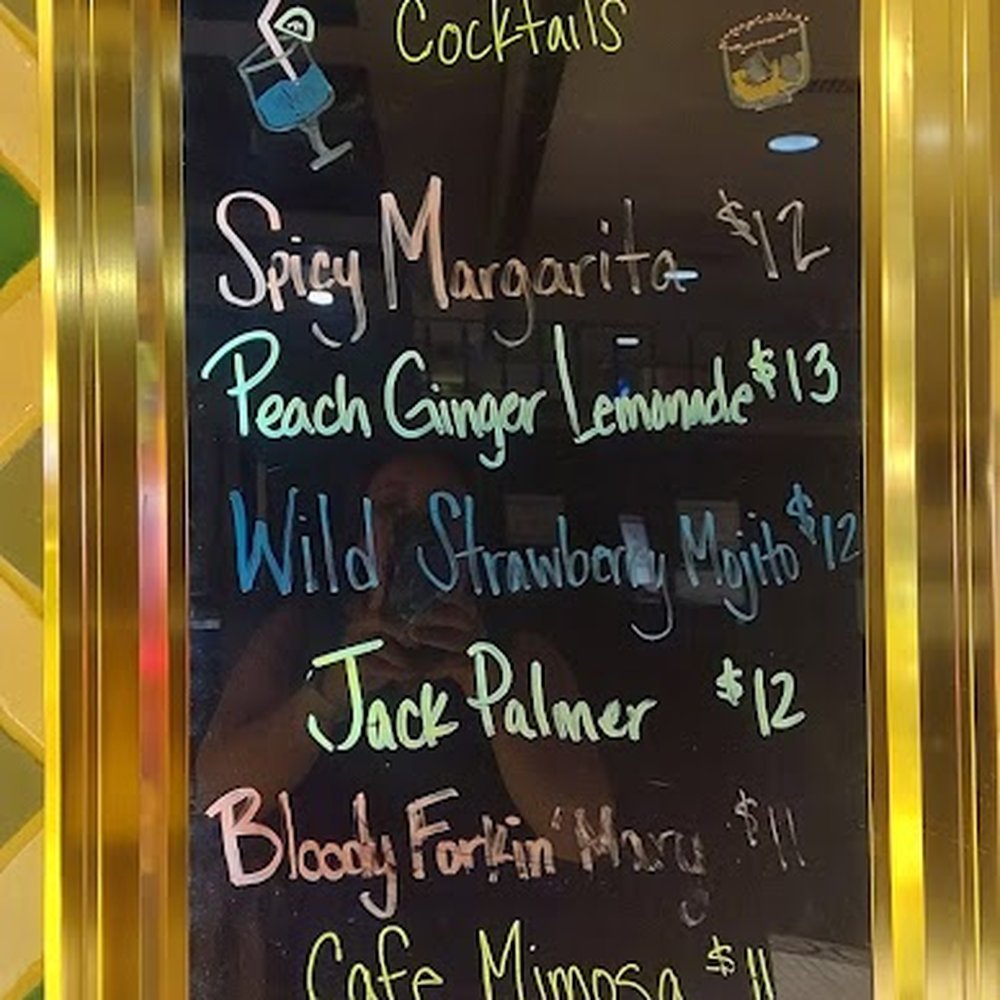 Cocktails
Spicy Margarita $12
Peach Ginger Lemonade $13
Wild Strawberry Mojito $12
Jack Palmer $12
Bloody Forkin' Mary $11
Cafe Mimosa $11